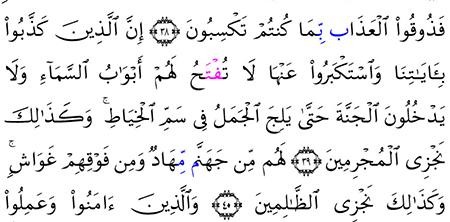 فَذُوقُواْ ٱلْعَذَاب بِّمَا كُنتُمْ تَكْسِبُونَ ﴿٣٨﴾ إِنَّ ٱلَّذِينَ كَذَّبُواْ
بِـَٔايَٰتِنَا وَٱسْتَكْبَرُواْ عَنْهَا لَا تُفْتَحُ لَهُمْ أَبْوَٰبُ ٱلسَّمَآءِ وَلَا
يَدْخُلُونَ ٱلْجَنَّةَ حَتَّىٰ يَلِجَ ٱلْجَمَلُ فِى سَمِّ ٱلْخِيَاطِ ۚ وَكَذَٰلِكَ
نَجْزِى ٱلْمُجْرِمِينَ ﴿٣٩﴾ لَهُم مِّن جَهَنَّم مِّهَادٌ وَمِن فَوْقِهِمْ غَوَاشٍ ۚ
وَكَذَٰلِكَ نَجْزِى ٱلظَّٰلِمِينَ ﴿٤٠﴾ وَٱلَّذِينَ ءَامَنُواْ وَعَمِلُواْ